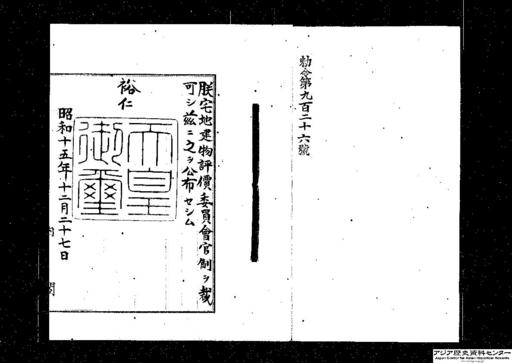 勅令第九百二十六號
朕宅地建物評價委員會官制ヲ裁
可シ茲ニ之ヲ公布セシム
裕仁
天皇御璽
昭和十五年十二月二十七日
内閣
アジア歴史資料センター
Japan Center for Asian Historical Records